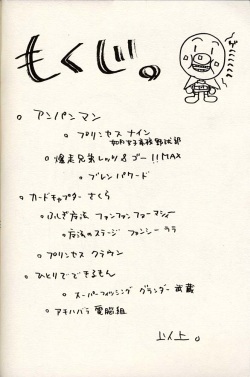 もくじ。
ざこキャラ
○ アンパンマン
○ プリンセス ナイン
如月女子高校野球部
○ 爆走兄弟レッツ&ゴー!!MAX
○ ブレンパワード
○ カードキャプター さくら
○ ふしぎ魔法 ファンファンファーマシィー
○ 魔法のステージ ファンシーララ
○ プリンセス クラウン
○ ひとりでできるもん
○ スーパーフィッシング グランダー武蔵
○ アキハバラ電脳組
以上。